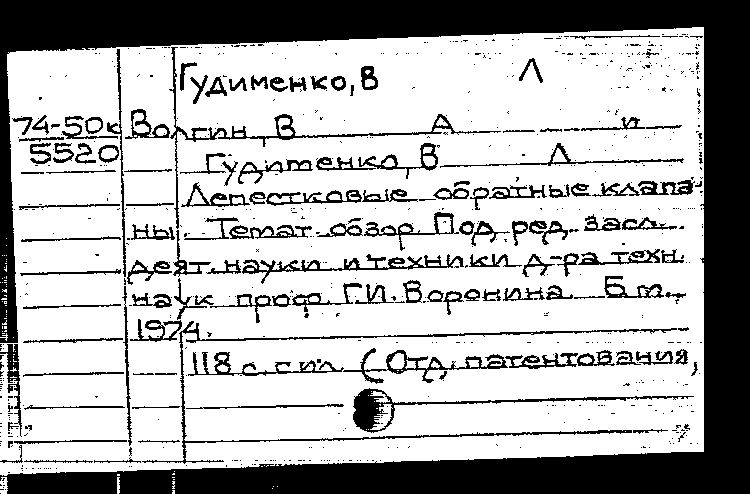 Гудименко, В Л
74-50к Волгин, В А и
5520 Гудименко, В Л
Лепестковые обратные клапа-
ны. Темат. обзор. Под ред. засл.
деят. науки и техники д-ра техн.
наук проф. Г.И. Воронина. Б.м.,
1974.
118 с. с ил. (Отд. патентования,